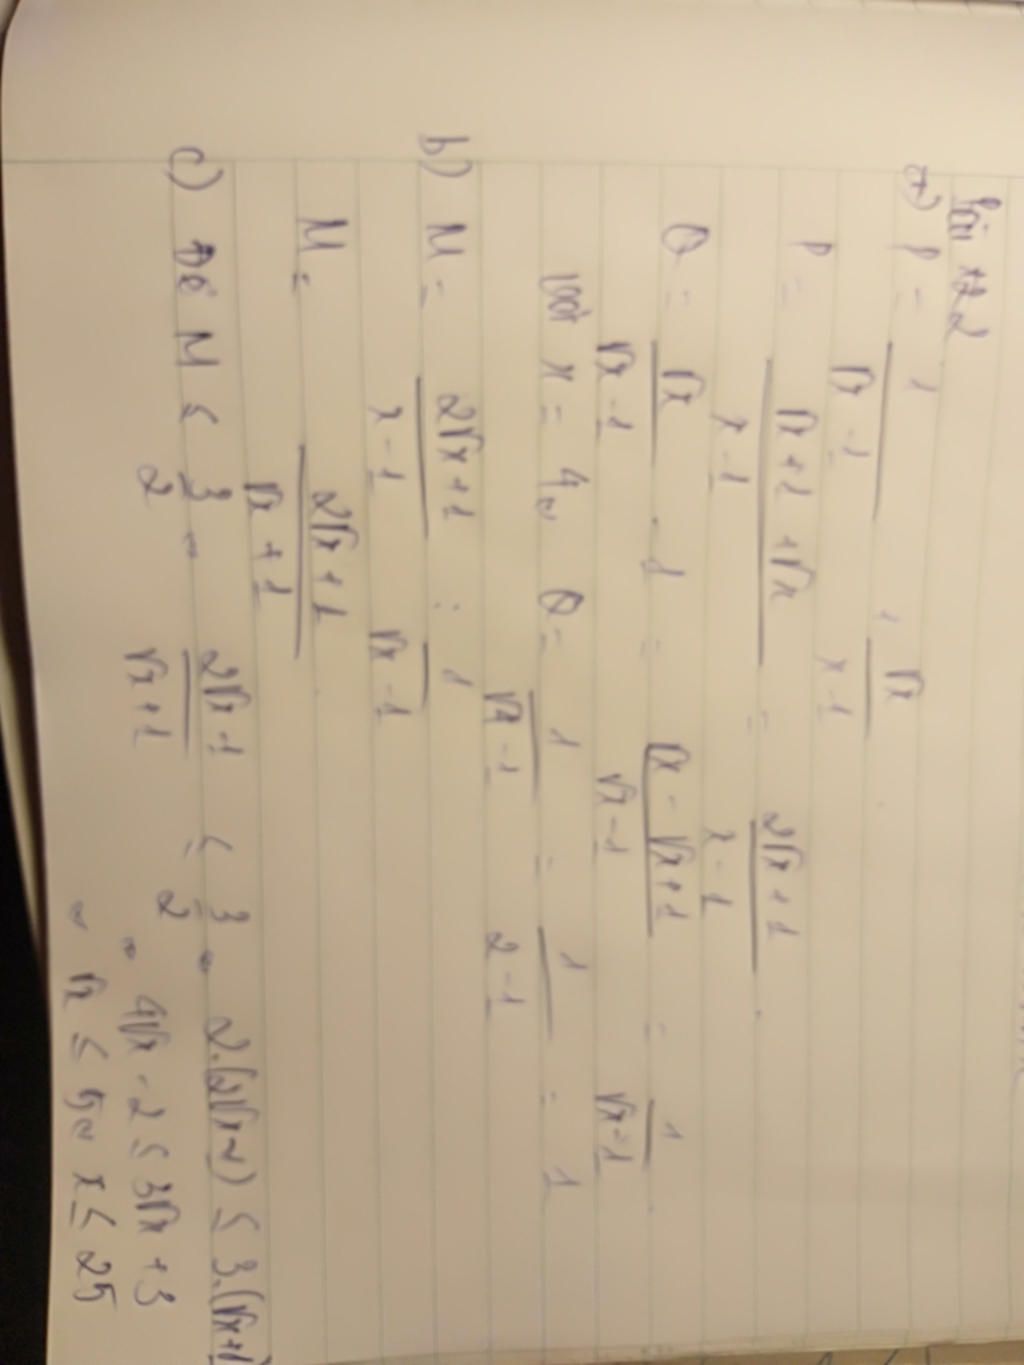 Bài 2
a) P = 1/(√x - 1) + √x/(x - 1)
P = (√x + 1 + √x)/(x - 1) = (2√x + 1)/(x - 1).
Q = √x/(√x - 1) - 1 = (√x - √x + 1)/(√x - 1) = 1/(√x - 1).
với x = 4, Q = 1/(√4 - 1) = 1/(2 - 1) = 1
b) M = (2√x + 1)/(x - 1) : 1/(√x - 1)
M = (2√x + 1)/(√x + 1).
c) Để M ≤ 3/2 ⇔ (2√x - 1)/(√x + 1) ≤ 3/2 ⇔ 2.(2√x - 1) ≤ 3.(√x + 1)
⇔ 4√x - 2 ≤ 3√x + 3
⇔ √x ≤ 5 ⇔ x ≤ 25